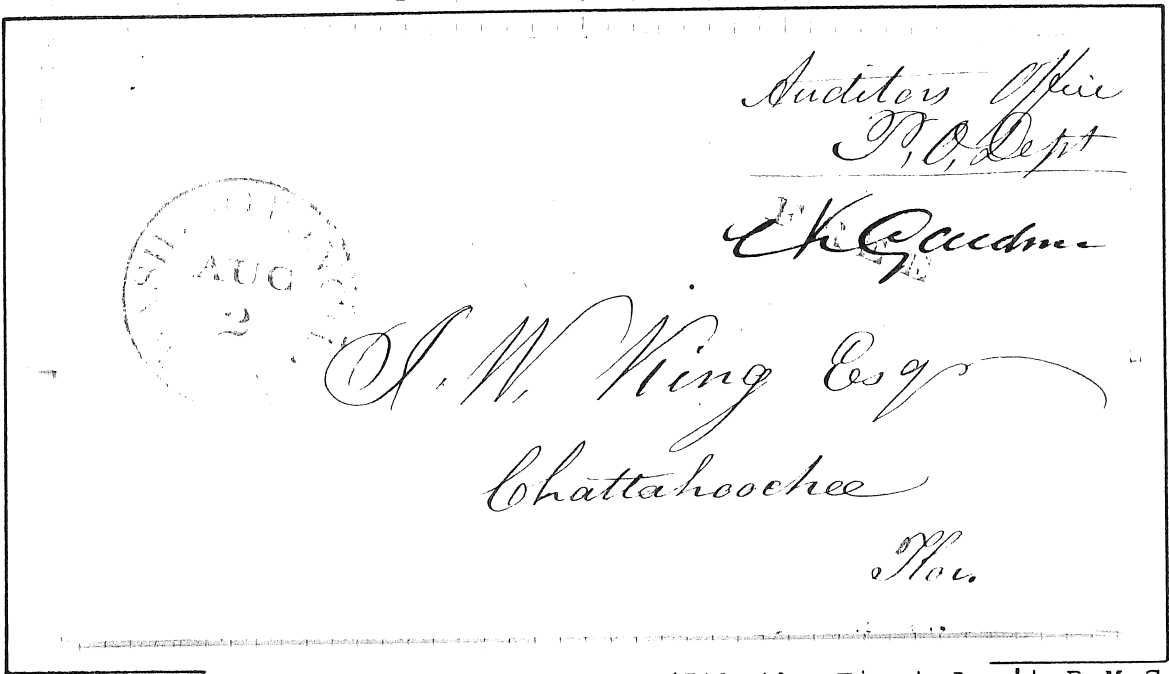 Auditors Office
P, O, Dept
FREE
AUG
2
J. W. King Esqr
Chattahoochee
Flor.